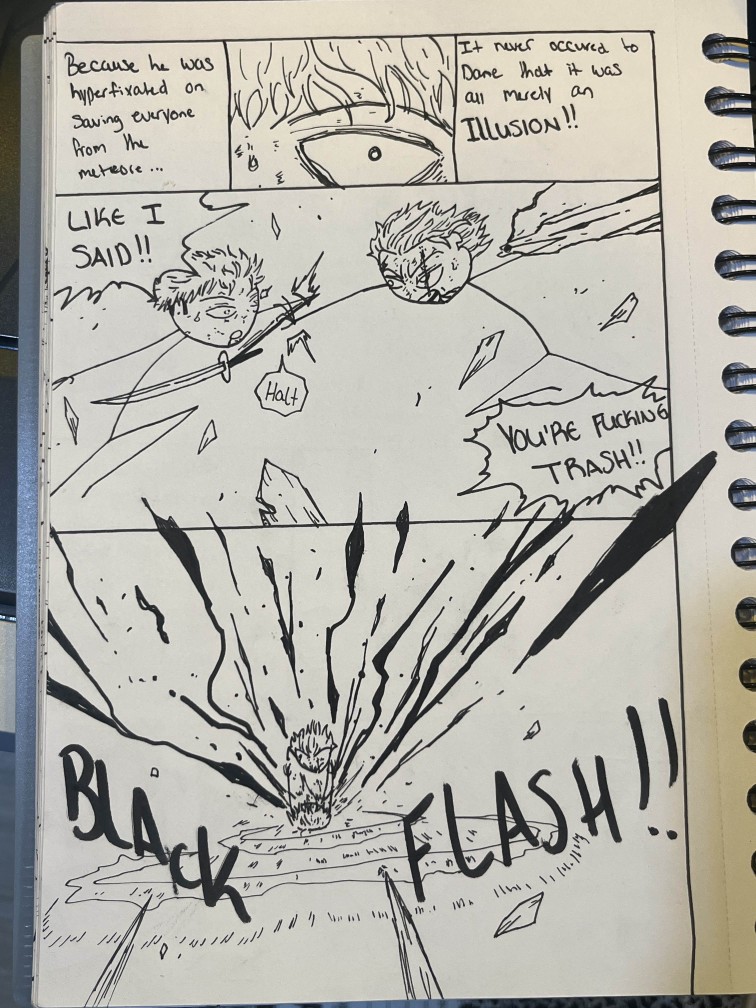 Because he was
hyperfixated on
Saving everyone
from the
meteore...
It never occured to
Dame that it was
all merely an
ILLUSION!!
LIKE I
SAID!!
Halt
YOU'RE FUCKING
TRASH!!
BLACK FLASH!!